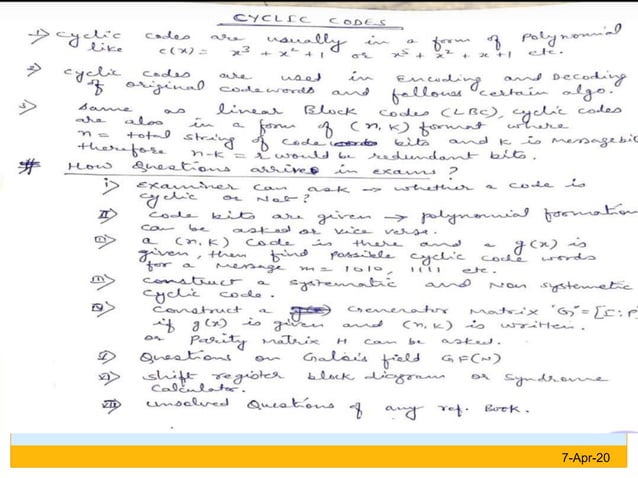 CYCLIC CODES
1) Cyclic codes are usually in a form of Polynomial
like c(x) = x³ + x² + 1 or x⁵ + x² + x + 1 etc.
2) cyclic codes are used in Encoding and Decoding
of original codewords and follows certain algo.
3) Same as linear Block codes (LBC), cyclic codes
are also in a form of (n, k) format where
n = total string of code bits and k is message bit
therefore n-k = r would be redundant bits.
# How Questions arrives in exams?
i) Examiner can ask → whether a code is
cyclic or Not?
II) code bits are given → polynomial formation
can be asked or vice versa.
a (n, k) code is there and a g(x) is
given, then find possible cyclic code words
for a message m = 1010, 1111 etc.
construct a systematic and Non systemetic
cyclic code.
construct a Generator Matrix "G" = [I : P]
if g(x) is given and (n, k) is written.
or Parity Matrix H can be asked.
Questions on Galois field GF(N)
shift register block diagram or Syndrome
Calculator.
unsolved Questions of any ref. Book.
7-Apr-20